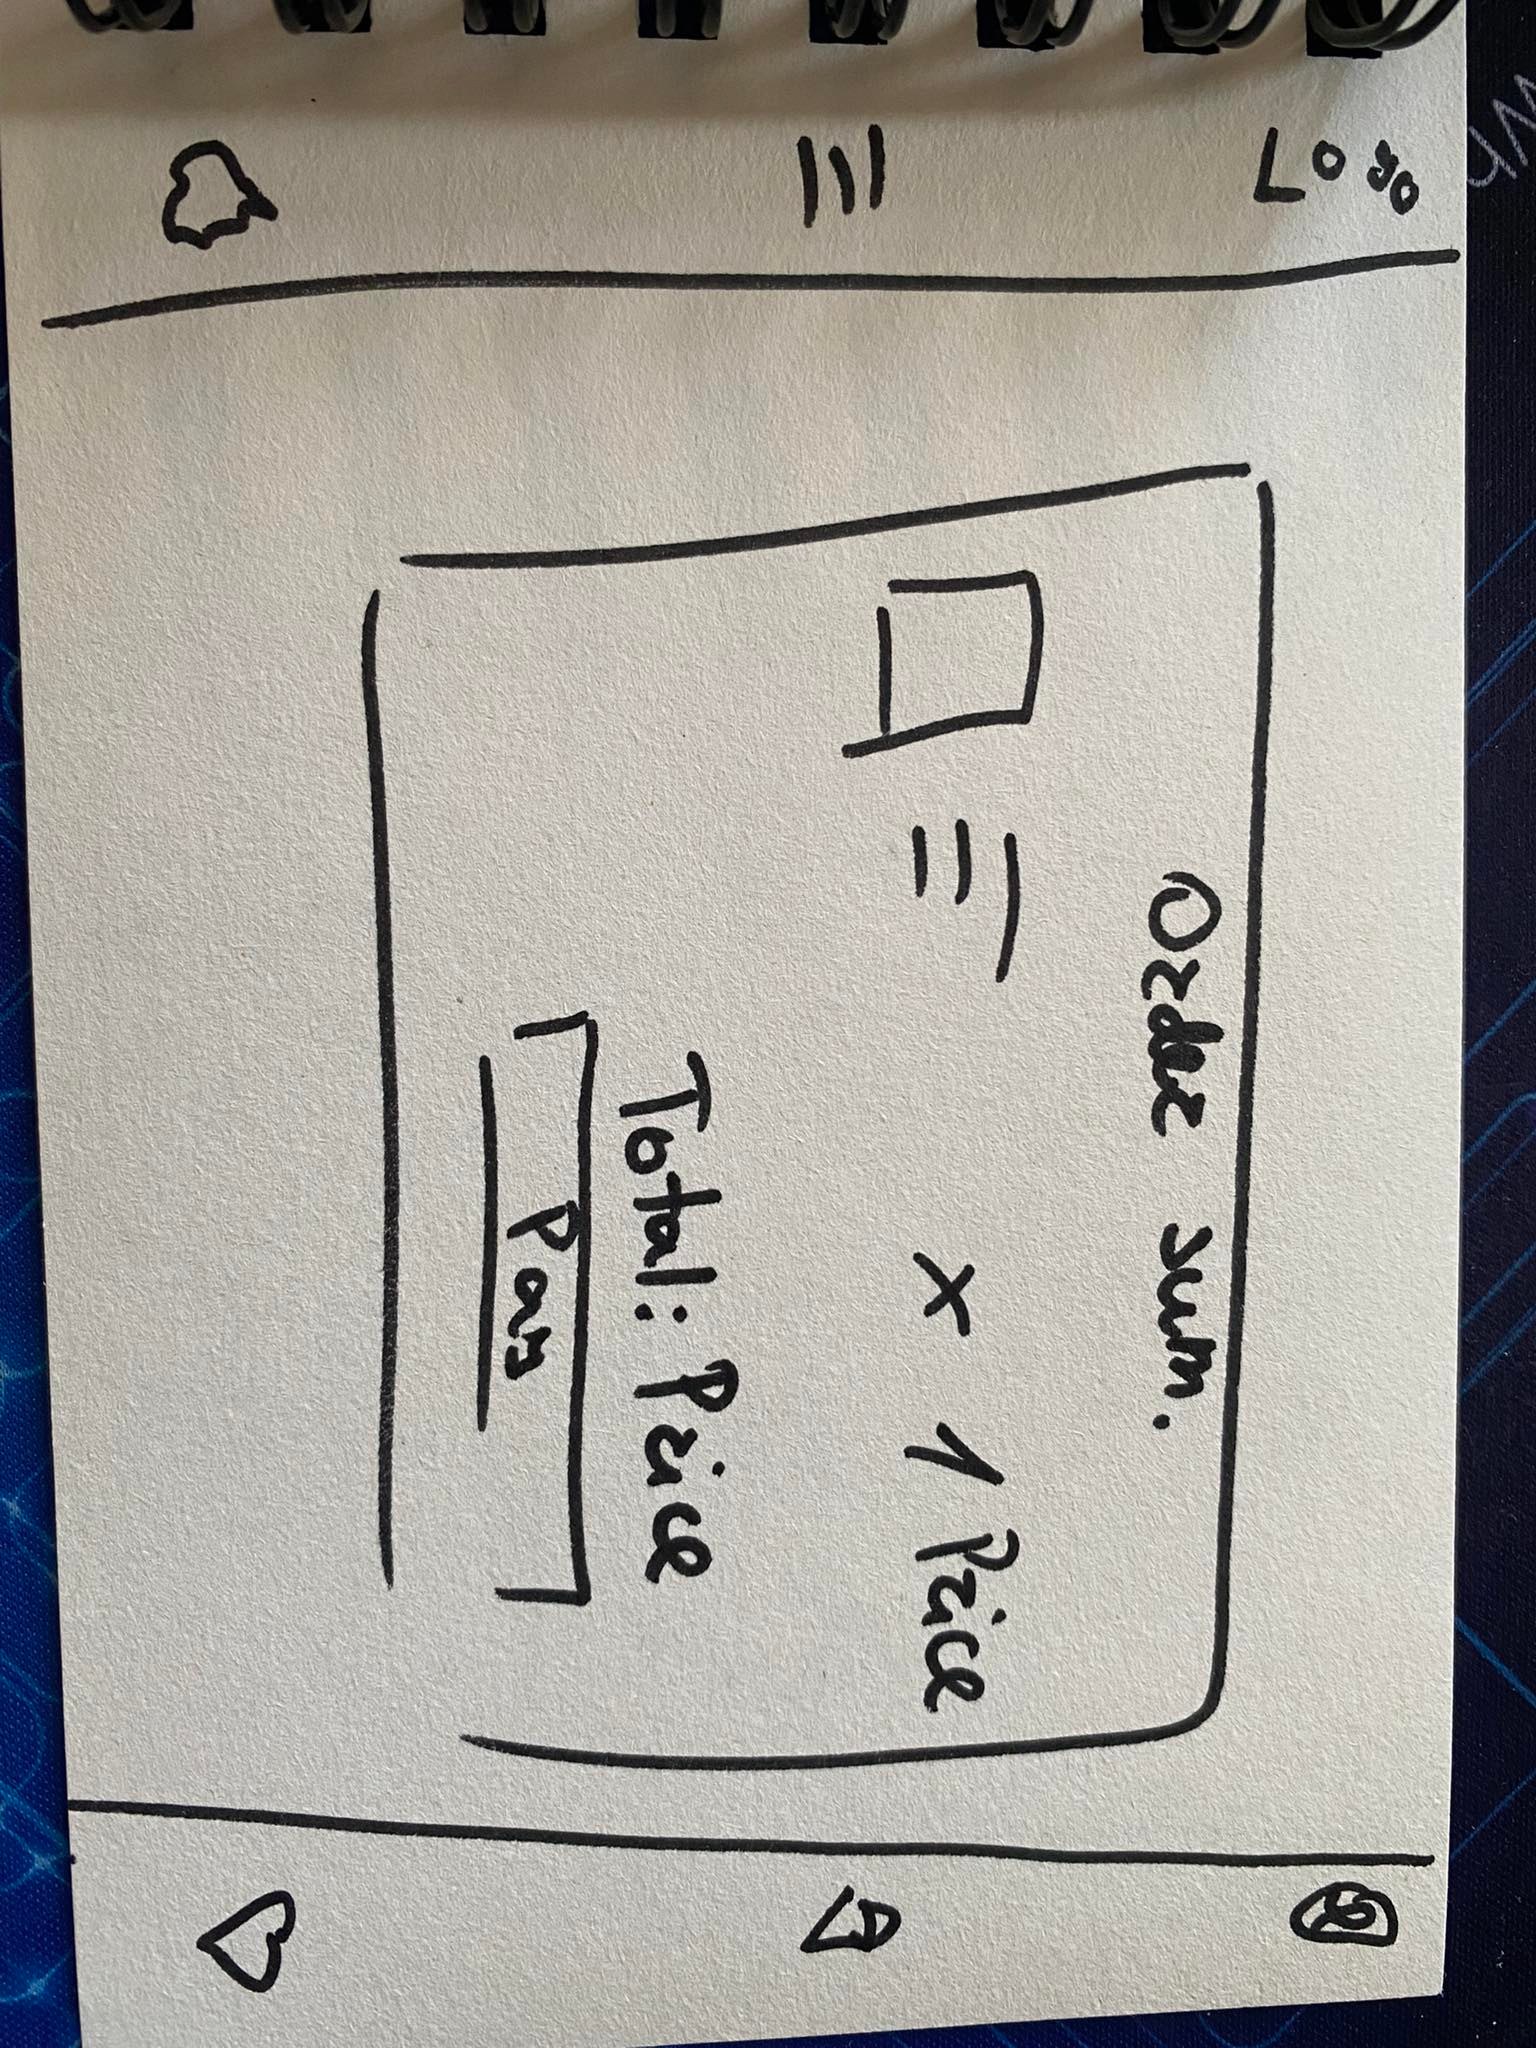 Logo
Order sum.
x 1 Price
Total: Price
Pay